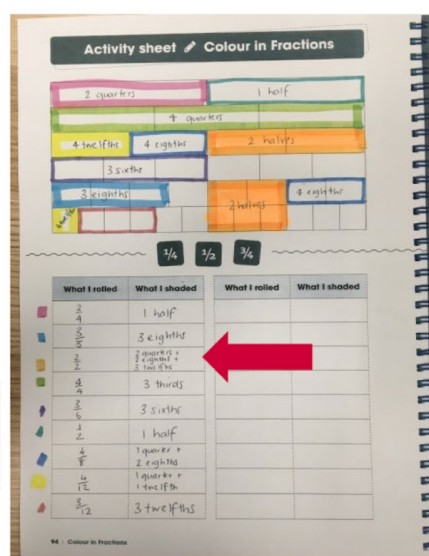 Activity sheet Colour in Fractions
2 quarters 1 half
4 quarters
4 twelfths 4 eighths 2 halves
3 sixths
3 eighths 2 halves 4 eighths
1/4 1/2 3/4
What I rolled What I shaded What I rolled What I shaded
2/4 1 half
3 eighths
2/2 2 quarters +
eighths +
3 twelfths
4/4 3 thirds
3/6 3 sixths
1/2 1 half
4/8 1 quarter +
2 eighths
4/12 1 quarter +
1 twelfth
3/12 3 twelfths
94 : Colour in Fractions